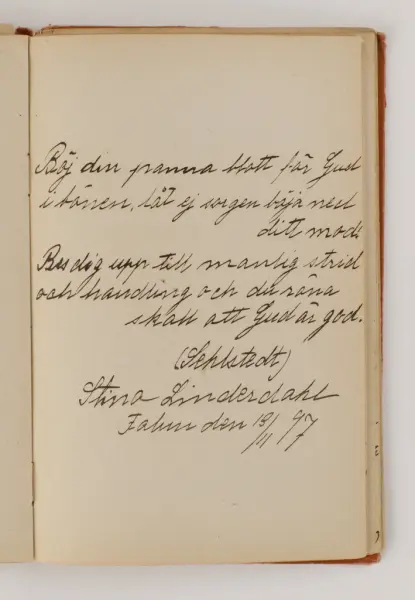 Böj din panna blott för Gud
i bönen, låt ej sorgen böja ned
ditt mod.
Res dig upp till manlig strid
och handling och du röna
skall att Gud är god.
(Sehlstedt)
Stina Linderdahl
Falun den 18/11 97